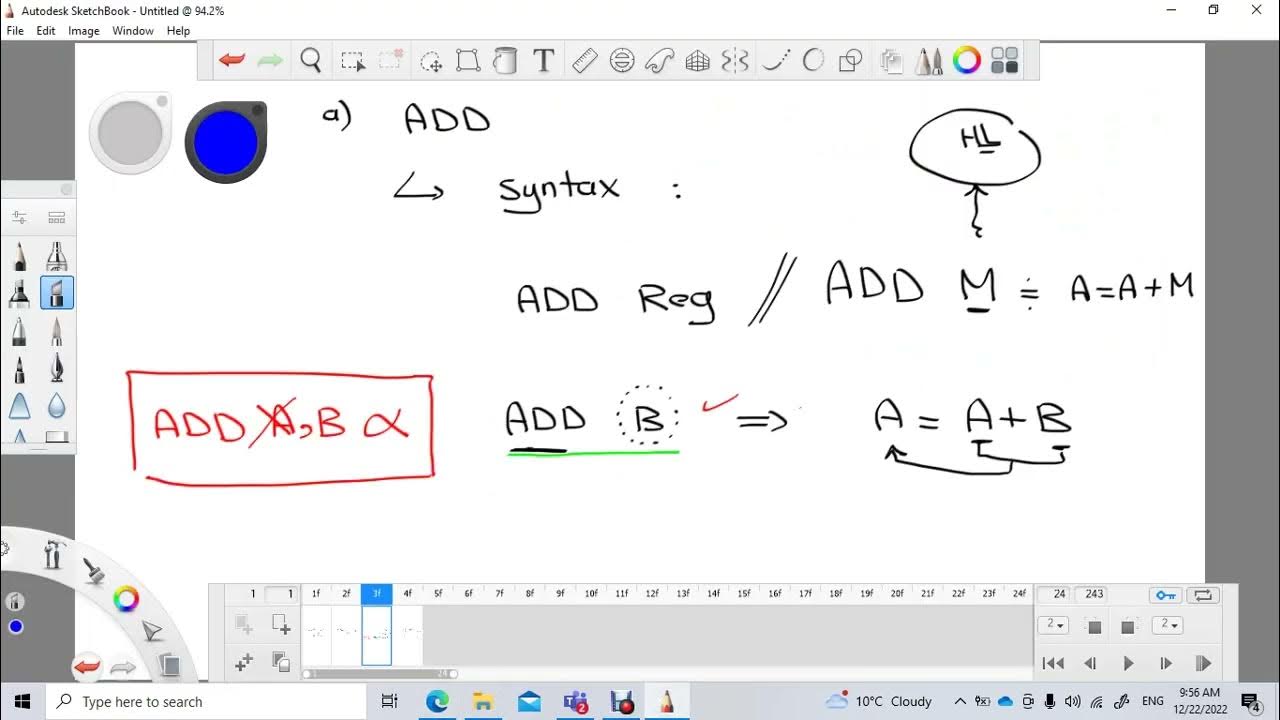 Autodesk SketchBook - Untitled @ 94.2%
File Edit Image Window Help
a) ADD
HL
↳ syntax :
ADD Reg // ADD M ÷ A=A+M
ADD A,B ∝
ADD B ✓ ⇒ A = A+B
1 1 1f 2f 3f 4f 5f 6f 7f 8f 9f 10f 11f 12f 13f 14f 15f 16f 17f 18f 19f 20f 21f 22f 23f 24f 24 243
2 2
1 24
Type here to search
2
10°C Cloudy
ENG
9:56 AM
12/22/2022
4